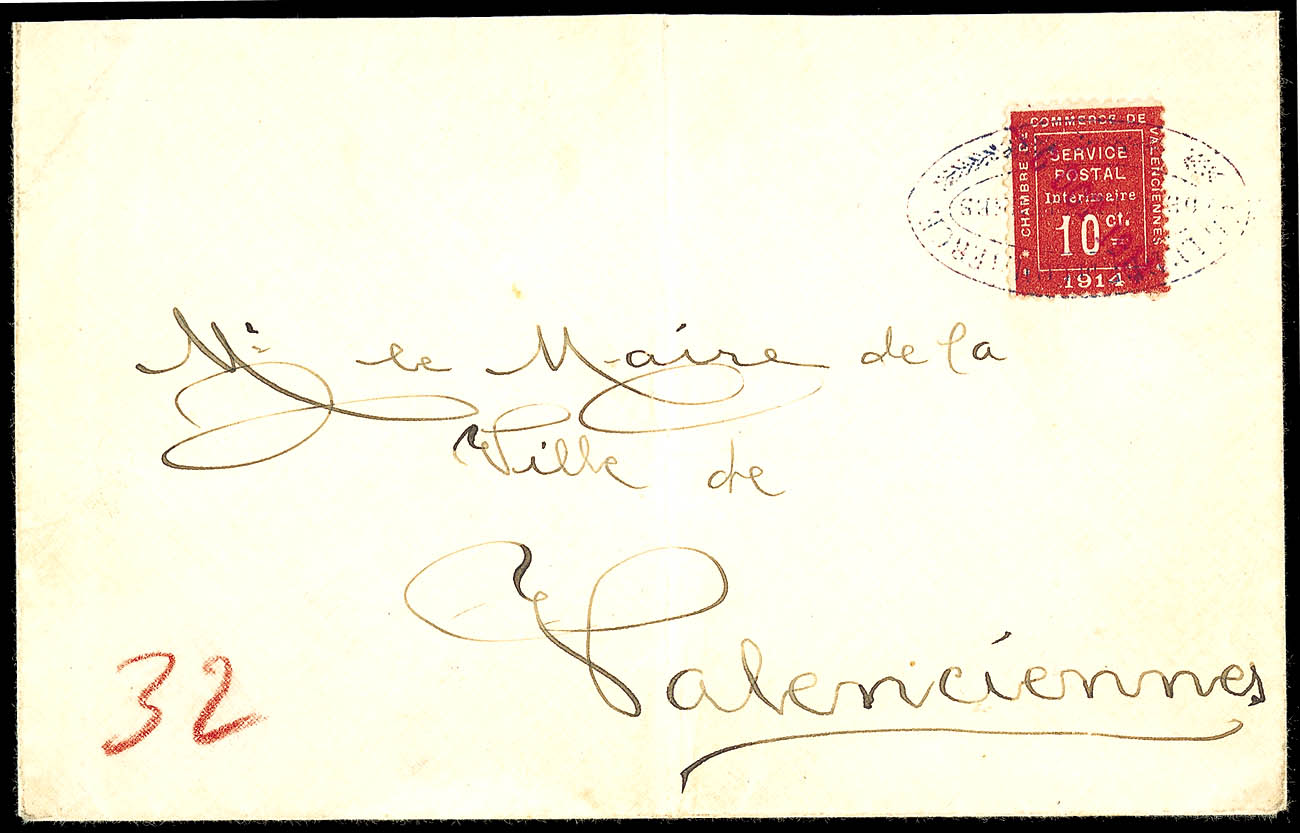 CHAMBRE DE COMMERCE DE VALENCIENNES
SERVICE
POSTAL
Interimaire
10 ct.
* 1914 *
Mr le Maire de la
Ville de
Valenciennes
32